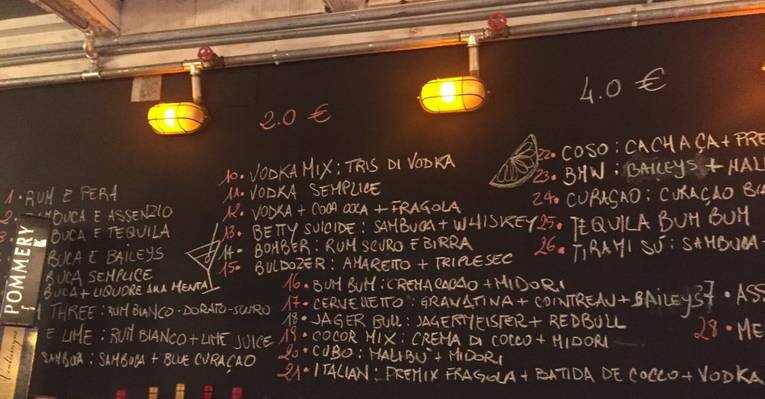 2.0 €
4.0 €
1. RUM E PERA
2. BUCA E ASSENZIO
BUCA E TEQUILA
BUCA E BAILEYS
BUCA SEMPLICE
BUCA + LIQUORE ALLA MENTA
THREE: RUM BIANCO - DORATO - SCURO
E LIME: RUM BIANCO + LIME JUICE
SAMBUCA: SAMBUCA + BLUE CURAÇAO
10. VODKA MIX: TRIS DI VODKA
11. VODKA SEMPLICE
12. VODKA + COCA COCA + FRAGOLA
13. BETTY SUICIDE: SAMBUCA + WHISKEY
14. BOMBER: RUM SCURO E BIRRA
15. BULDOZER: AMARETTO + TRIPLE SEC
16. BUM BUM: CREMA CACAO + MIDORI
17. CERVELLETTO: GRANATINA + COINTREAU + BAILEYS
18. JAGER BULL: JAGERMEISTER + REDBULL
19. COCOR MIX: CREMA DI COCCO + MIDORI
20. CUBO: MALIBU + MIDORI
21. ITALIAN: PREMIX FRAGOLA + BATIDA DE COCCO + VODKA
22. COSO: CACHAÇA + PRE
23. BMW: BAILEYS + MAL
24. CURAÇAO: CURAÇAO BL
25. TEQUILA BUM BUM
26. TIRAMI SÙ: SAMBUCA
7. ASS
28. ME
POMMERY